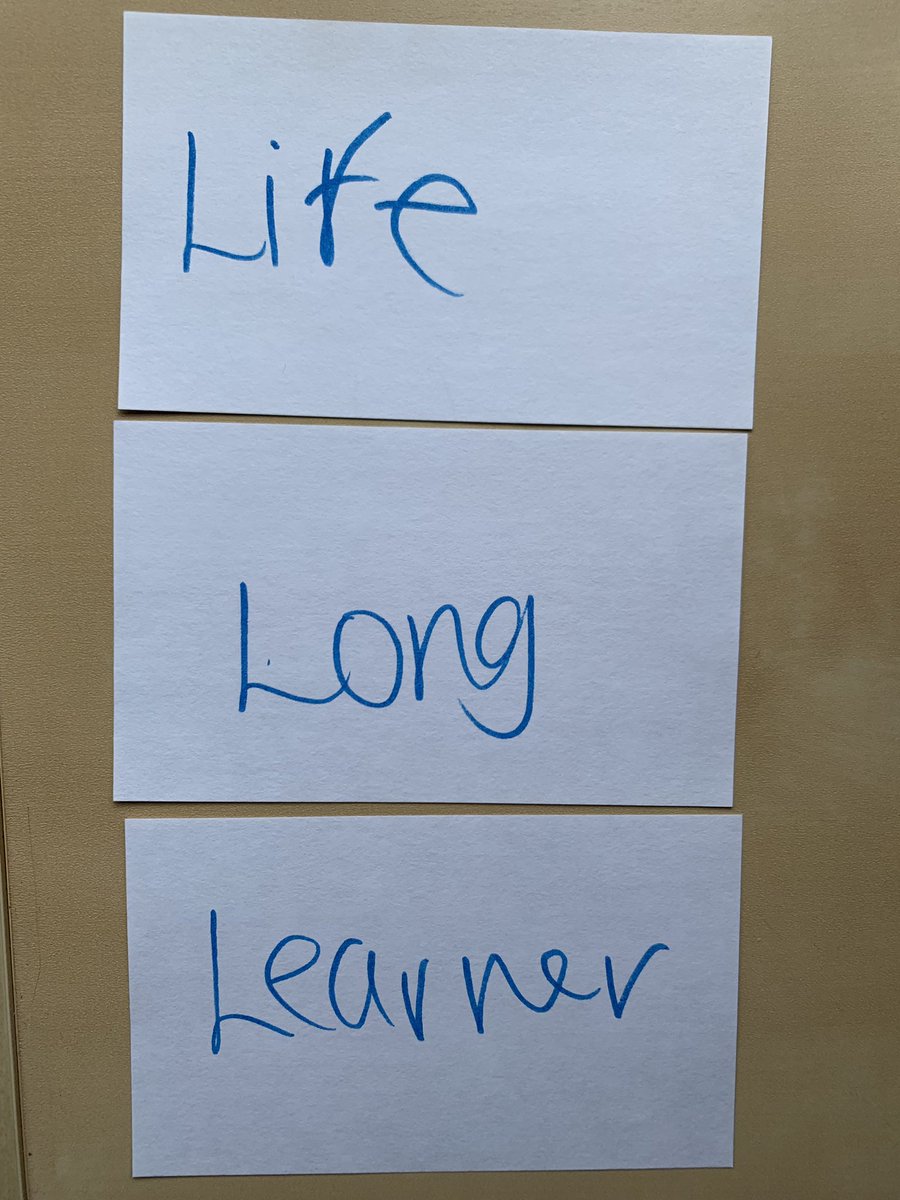 Life
Long
Learner